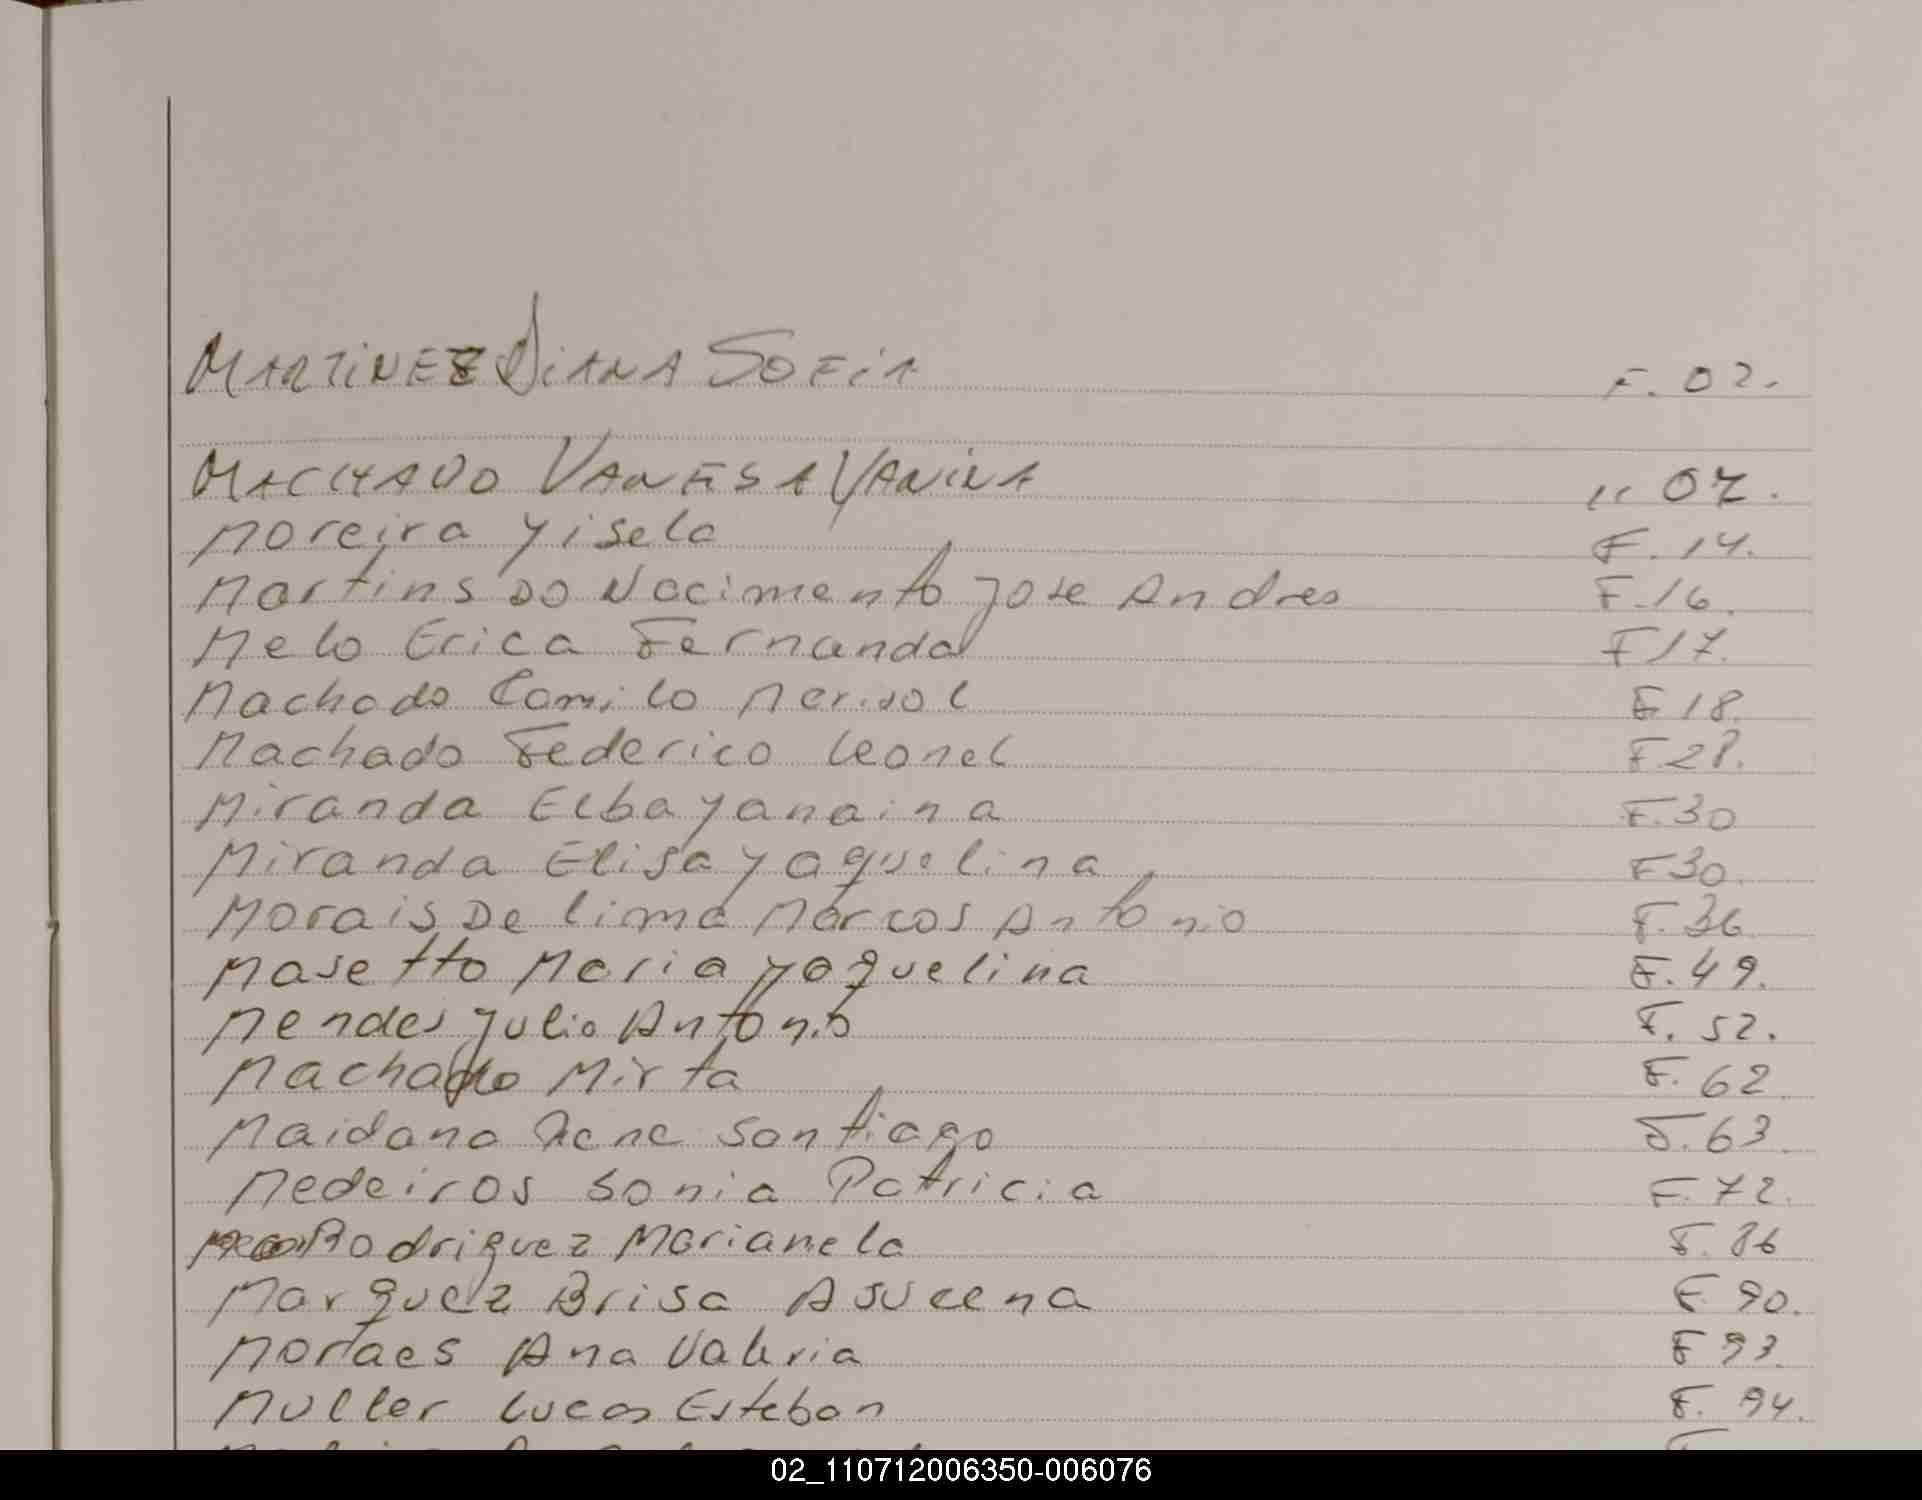 MARTINEZ DIANA SOFIA F. 02.
MACHADO VANESA YANINA " 07.
Moreira Yisela F. 14.
Martins Do Nacimento Jose Andres F. 16.
Melo Erica Fernanda F 17.
Machado Camilo Merisol F 18.
Machado Federico Leonel F 28.
Miranda Elba Yanaina F. 30
Miranda Elisa Yaquelina F 30.
Morais De Lima Marcos Antonio F. 36
Masetto Maria Yaquelina F. 49.
Mendes Julio Antonio F. 52.
Machado Mirta F. 62
Maidana Rene Santiago F. 63
Medeiros Sonia Patricia F. 72.
Rodriguez Marianela F. 86
Marquez Brisa Asucena F. 90.
Moraes Ana Valeria F 93.
Muller Lucas Esteban F. 94.
02_110712006350-006076